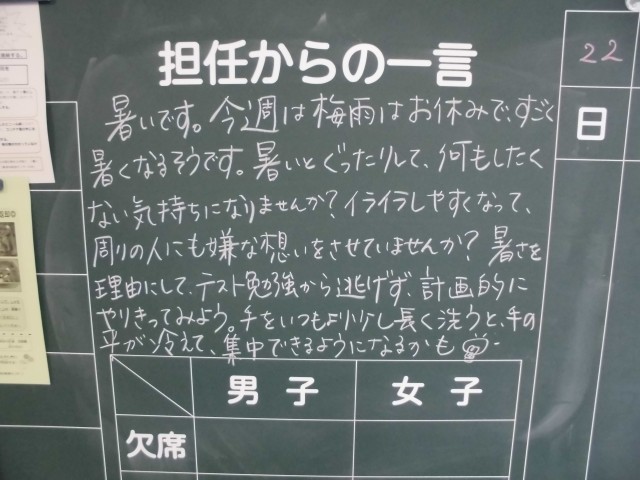 担任からの一言
22
日
暑いです。今週は梅雨はお休みで、すごく
暑くなるそうです。暑いとぐったりして、何もしたく
ない気持ちになりませんか?イライラしやすくなって、
周りの人にも嫌な想いをさせていませんか?暑さを
理由にして、テスト勉強から逃げず、計画的に
やりきってみよう。手をいつもより少し長く洗うと、手の
平が冷えて、集中できるようになるかも
男子
女子
欠席